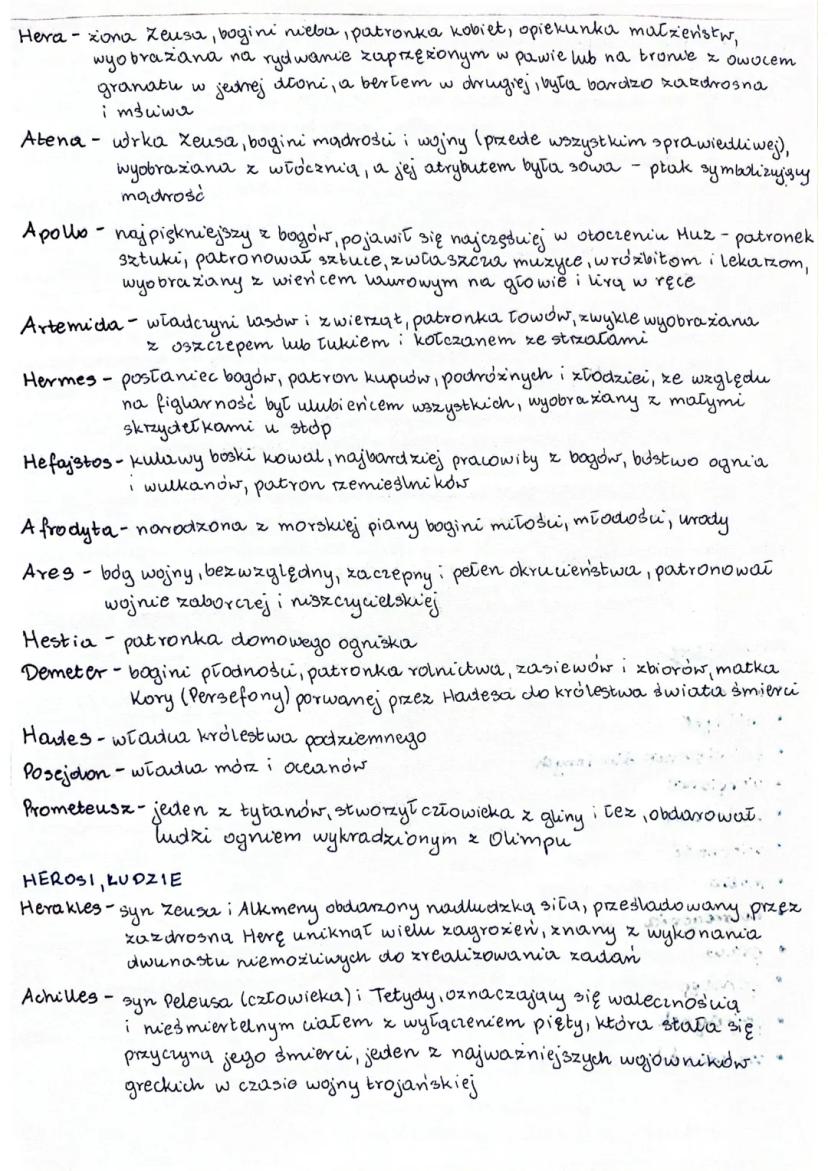 Hera - żona Zeusa, bogini nieba, patronka kobiet, opiekunka małżeństw,
wyobrażana na rydwanie zaprzężonym w pawie lub na tronie z owocem
granatu w jednej dłoni, a berłem w drugiej, była bardzo zazdrosna
i mściwa
Atena - córka Zeusa, bogini mądrości i wojny (przede wszystkim sprawiedliwej),
wyobrażana z włócznią, a jej atrybutem była sowa - ptak symbolizujący
mądrość
Apollo - najpiękniejszy z bogów, pojawił się najczęściej w otoczeniu Muz - patronek
sztuki, patronował sztuce, zwłaszcza muzyce, wróżbitom i lekarzom,
wyobrażany z wieńcem laurowym na głowie i lirą w ręce
Artemida - władczyni lasów i zwierząt, patronka łowów, zwykle wyobrażana
z oszczepem lub łukiem i kołczanem ze strzałami
Hermes - posłaniec bogów, patron kupców, podróżnych i złodziei, ze względu
na figlarność był ulubieńcem wszystkich, wyobrażany z małymi
skrzydełkami u stóp
Hefajstos - kulawy boski kowal, najbardziej pracowity z bogów, bóstwo ognia
i wulkanów, patron rzemieślników
Afrodyta - narodzona z morskiej piany bogini miłości, młodości, urody
Ares - bóg wojny, bezwzględny, zaczepny i pełen okrucieństwa, patronował
wojnie zaborczej i niszczycielskiej
Hestia - patronka domowego ogniska
Demeter - bogini płodności, patronka rolnictwa, zasiewów i zbiorów, matka
Kory (Persefony) porwanej przez Hadesa do królestwa świata śmierci
Hades - władca królestwa podziemnego
Posejdon - władca mórz i oceanów
Prometeusz - jeden z tytanów, stworzył człowieka z gliny i łez, obdarował
ludzi ogniem wykradzionym z Olimpu
HEROSI, LUDZIE
Herakles - syn Zeusa i Alkmeny obdarzony nadludzką siłą, prześladowany przez
zazdrosną Herę uniknął wielu zagrożeń, znany z wykonania
dwunastu niemożliwych do zrealizowania zadań
Achilles - syn Peleusa (człowieka) i Tetydy, oznaczający się walecznością
i nieśmiertelnym ciałem z wyłączeniem pięty, która stała się
przyczyną jego śmierci, jeden z najważniejszych wojowników
greckich w czasie wojny trojańskiej